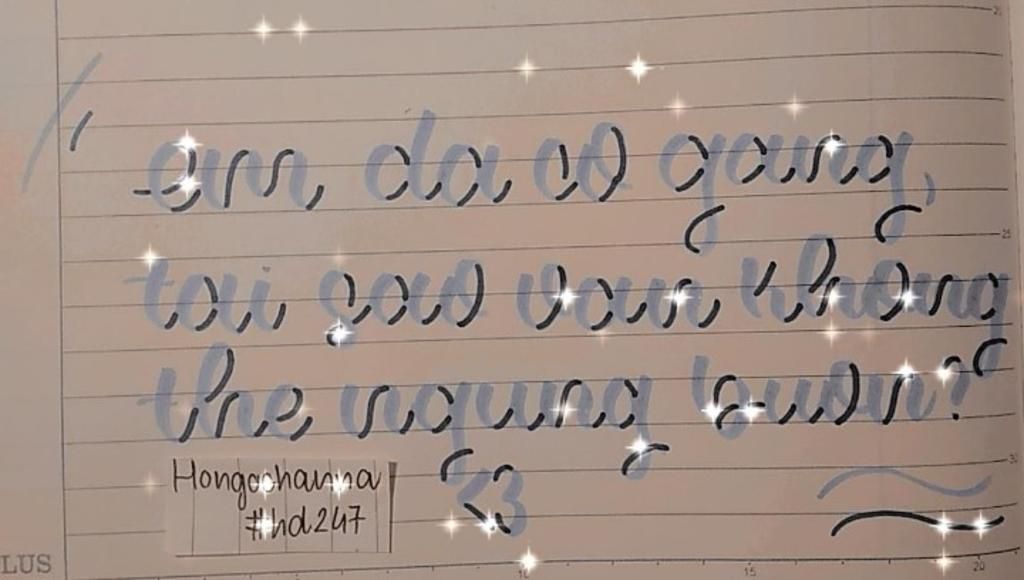 em da co gang,
tai sao van khong
the ngung buon?
<3
Hongochanna
#hd247
LUS
25
30
10
15
20